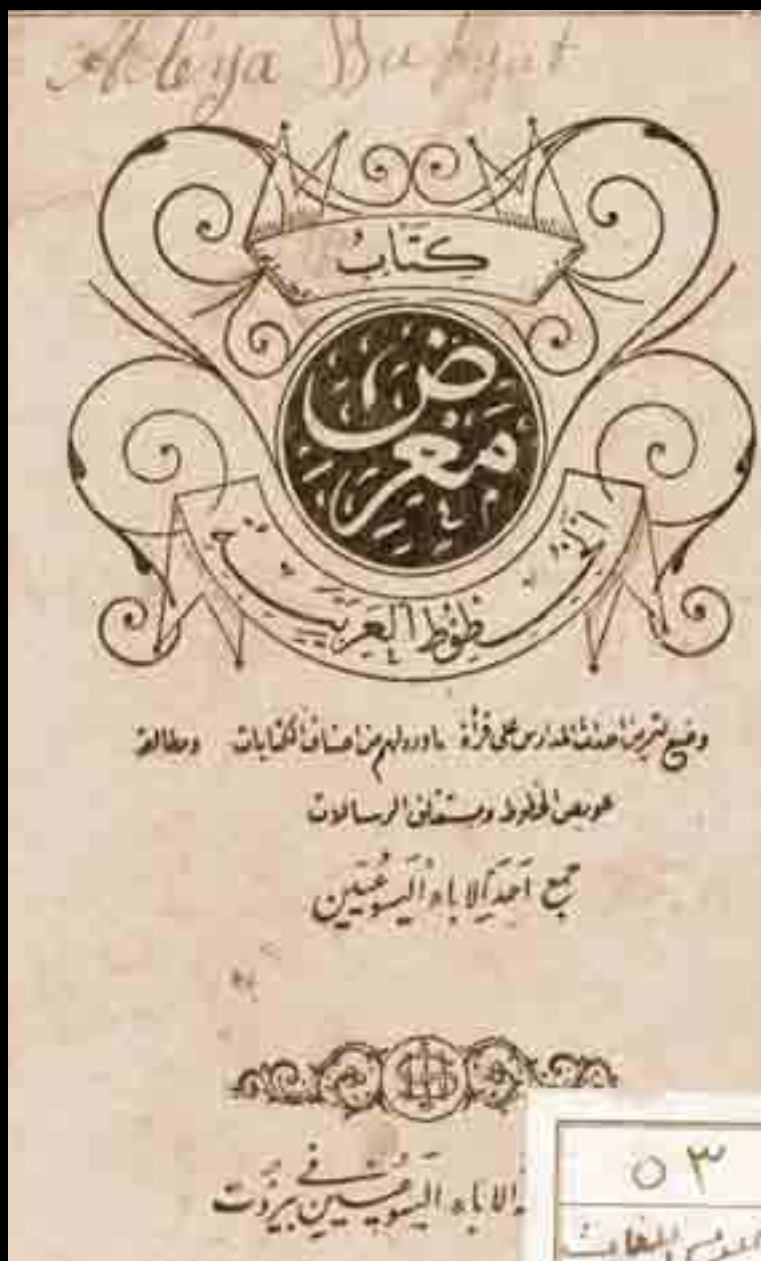 كتاب
معرض
الخطوط العربية
وضع لتمرين احداث المدارس على قرأة ما ورد لهم من اصناف الكتابات ومطالعة
عويص الخطوط ومستغلق الرسالات
جمع احد الاباء اليسوعيين
الاباء اليسوعيين في بيروت
٥٣